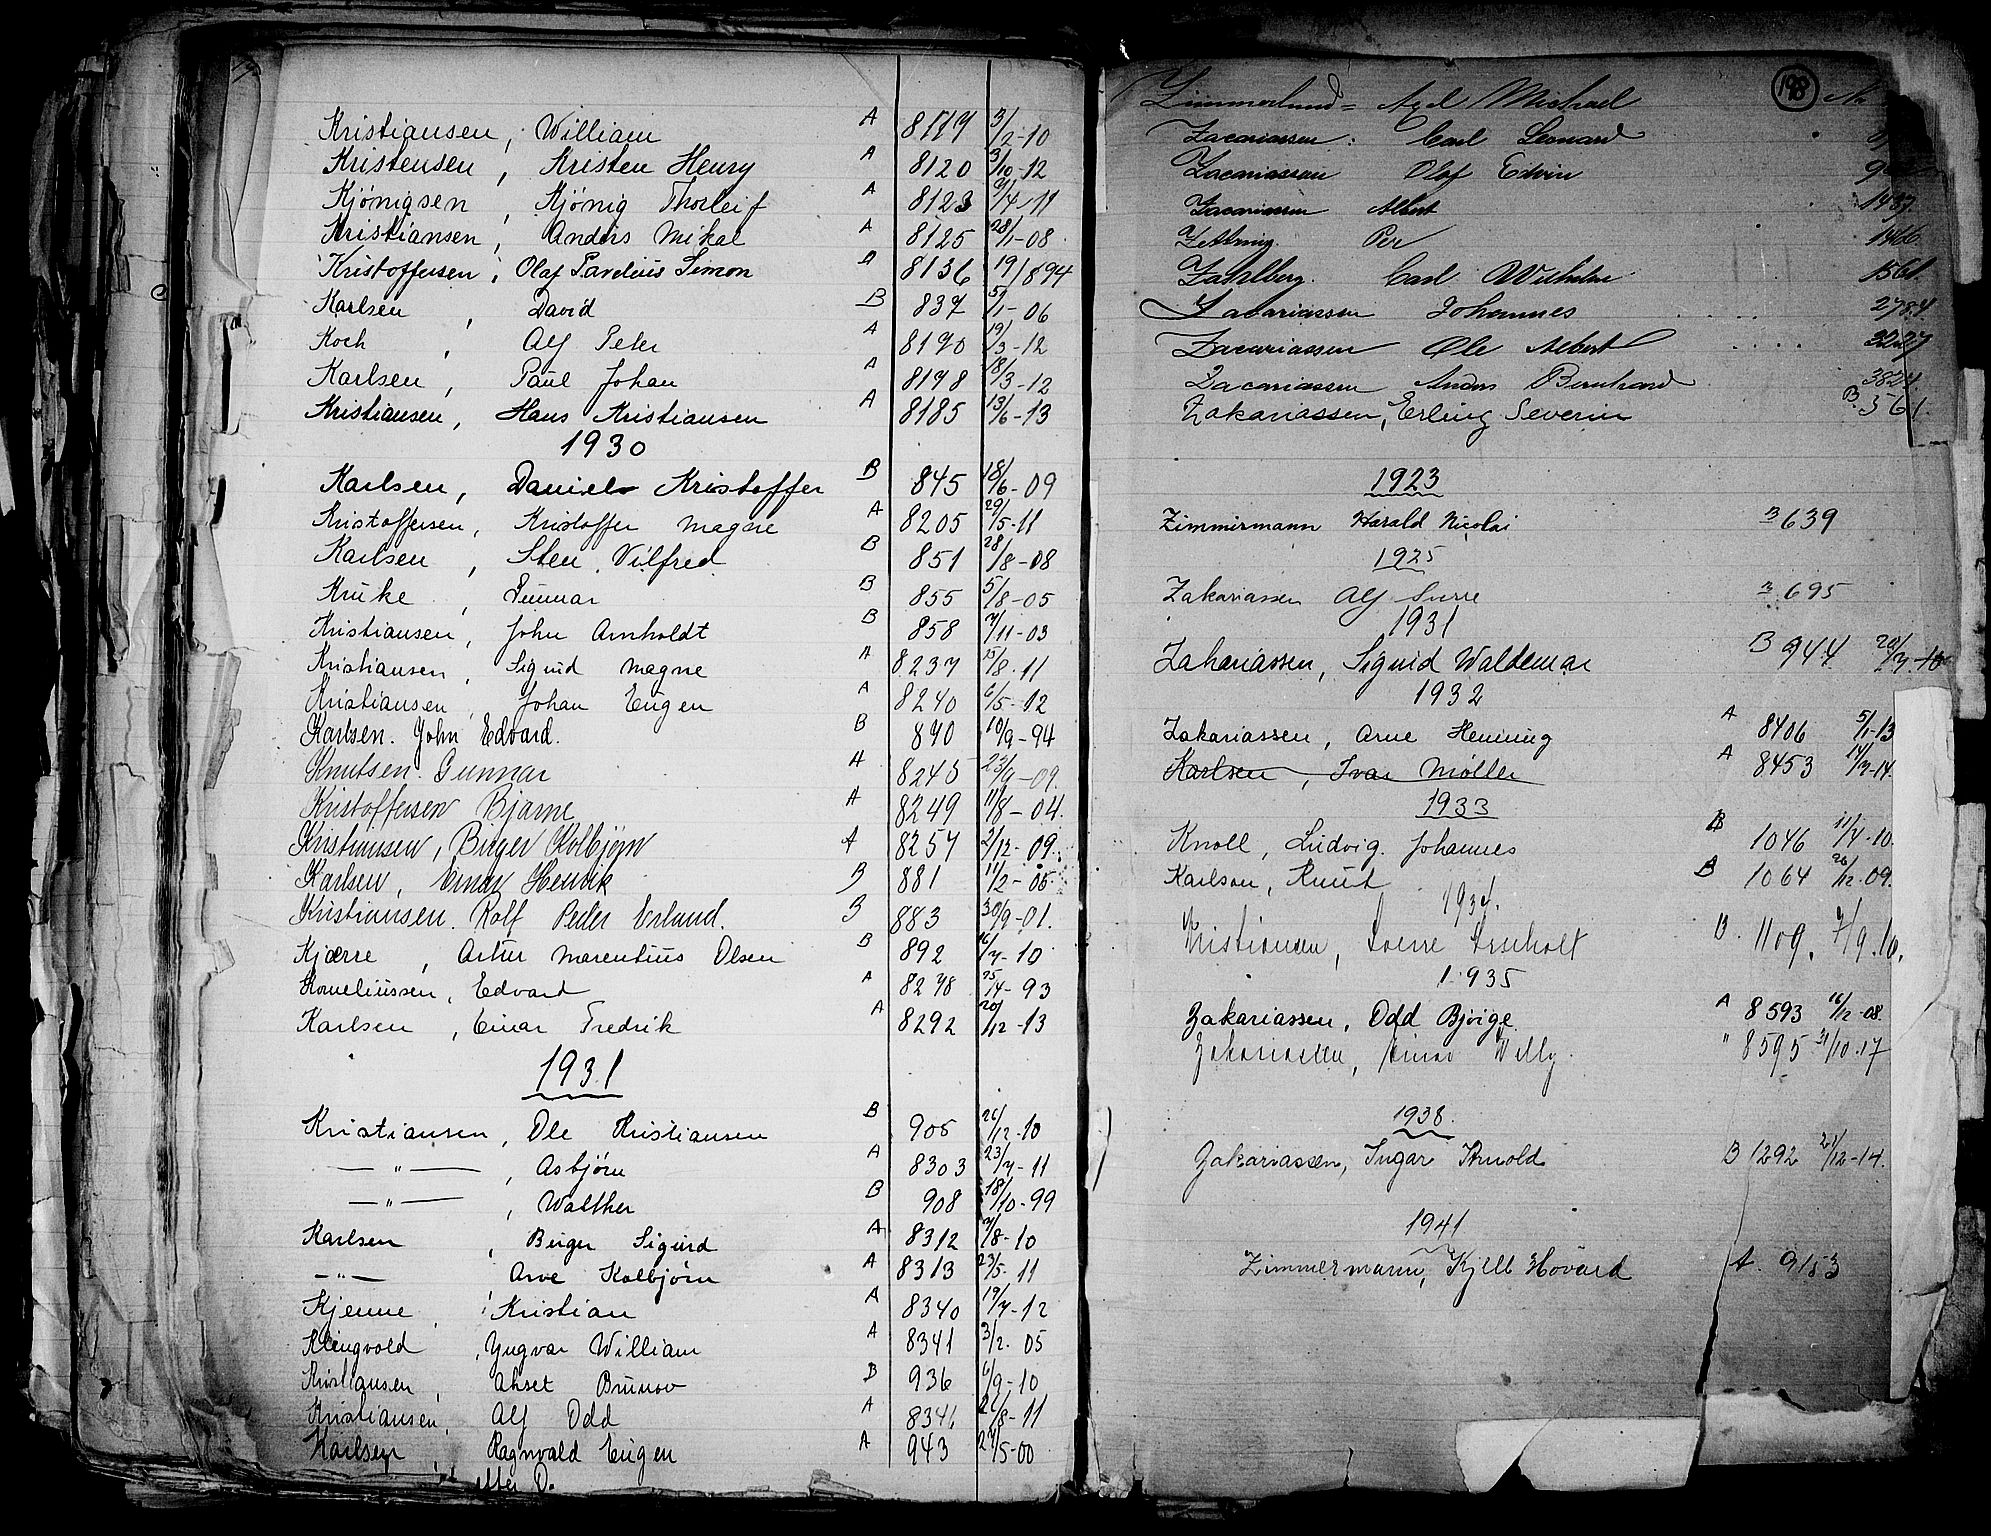 Kristiansen, William A 8117 3/2-10
Kristensen, Kristen Henry A 8120 3/10-12
Kjönigsen, Kjönig Thorleif A 8123 /4-11
Kristiansen, Anders Mikal A 8125 28/1-08
Kristoffersen, Olaf Simon A 8136 19/1894
Karlsen, David B 837 5/1-06
Koch, Alf Peter A 8190 19/3-12
Karlsen, Paul Johan A 8198 18/3-12
Kristiansen, Hans Kristiansen A 8185 13/6-13
1930
Karlsen, Daniel Kristoffer B 845 18/6-09
Kristoffersen, Kristoffer Magne A 8205 29/5-11
Karlsen, Sten Vilfred B 851 28/8-08
Kruke, Gunnar B 855 5/8-05
Kristiansen, John Arnholdt B 858 7/11-03
Kristiansen, Sigurd Magne A 8237 15/8-11
Kristiansen, Johan Eugen A 8240 6/5-12
Karlsen. John Edvard. B 870 19/9-94
Knutsen. Gunnar A 8245 23/9-09.
Kristoffersen Bjarne A 8249 11/8-04.
Kristiansen, Birger Kolbjörn A 8257 2/12-09.
Karlsen, Einar Henrik B 881 11/2-05
Kristiansen. Rolf Peder Erland. B 883 30/9-01.
Kjærre, Artur Marentius Olsen B 892 16/7-10
Korneliussen, Edvard A 8278 25/4-93
Karlsen, Einar Fredrik A 8292 20/12-13
1931
Kristiansen, Ole Kristiansen B 905 26/12-10
—"—, Asbjörn A 8303 23/7-11
—"—, Walther B 908 18/10-99
Karlsen, Birger Sigurd A 8312 7/8-10
—"— Arve Kolbjörn A 8313 23/5-11
Kjenne, Kristian A 8340 19/7-12
Klingvold, Yngvar William A 8341 3/2-05
Kristiansen, B 936 6/9-10
Kristiansen, Alf Odd A 8346 21/8-11
Karlsen, Ragnvald Eugen A 943 27/5-00
etter D.
198
Zimmerlund = Axel Michael
Zacariassen: Carl Leonard
Zacariassen Olaf Edvin
Zacariassen Albert 1437.
Per 1466.
Zahlberg. Carl Wilhelm 1561.
Zacariassen Johannes 2784.
Zacariassen Ole Albert 3227
Zacariassen Anders Bernhard 3824.
Zakariassen, Erling Severin B 561.
1923
Zimmermann Harald Nicolai B 639
1925
Zakariassen Alf B 695
1931
Zahariassen, Sigurd Waldemar B 944 20/7-10
1932
Zakariassen, Arne Henning A 8406 5/1-13
Karlsen, Ivar Møller A 8453 14/7-14.
1933
Knoll, Ludvig Johannes B 1046 11/7-10.
Karlson, Knut B 1064 26/12-09.
1934.
Kristiansen, Sverre Arnholt B. 1109. 7/9.10.
1935
Zakariassen, Odd Bjöige. A 8593 16/12-08.
Zakariassen, Einar Willy. " 8595 31/10.17
1938.
Zakariassen, Ingar Arnold B 1292 21/12-14.
1941
Zimmermann, Kjell Hövard A. 9153